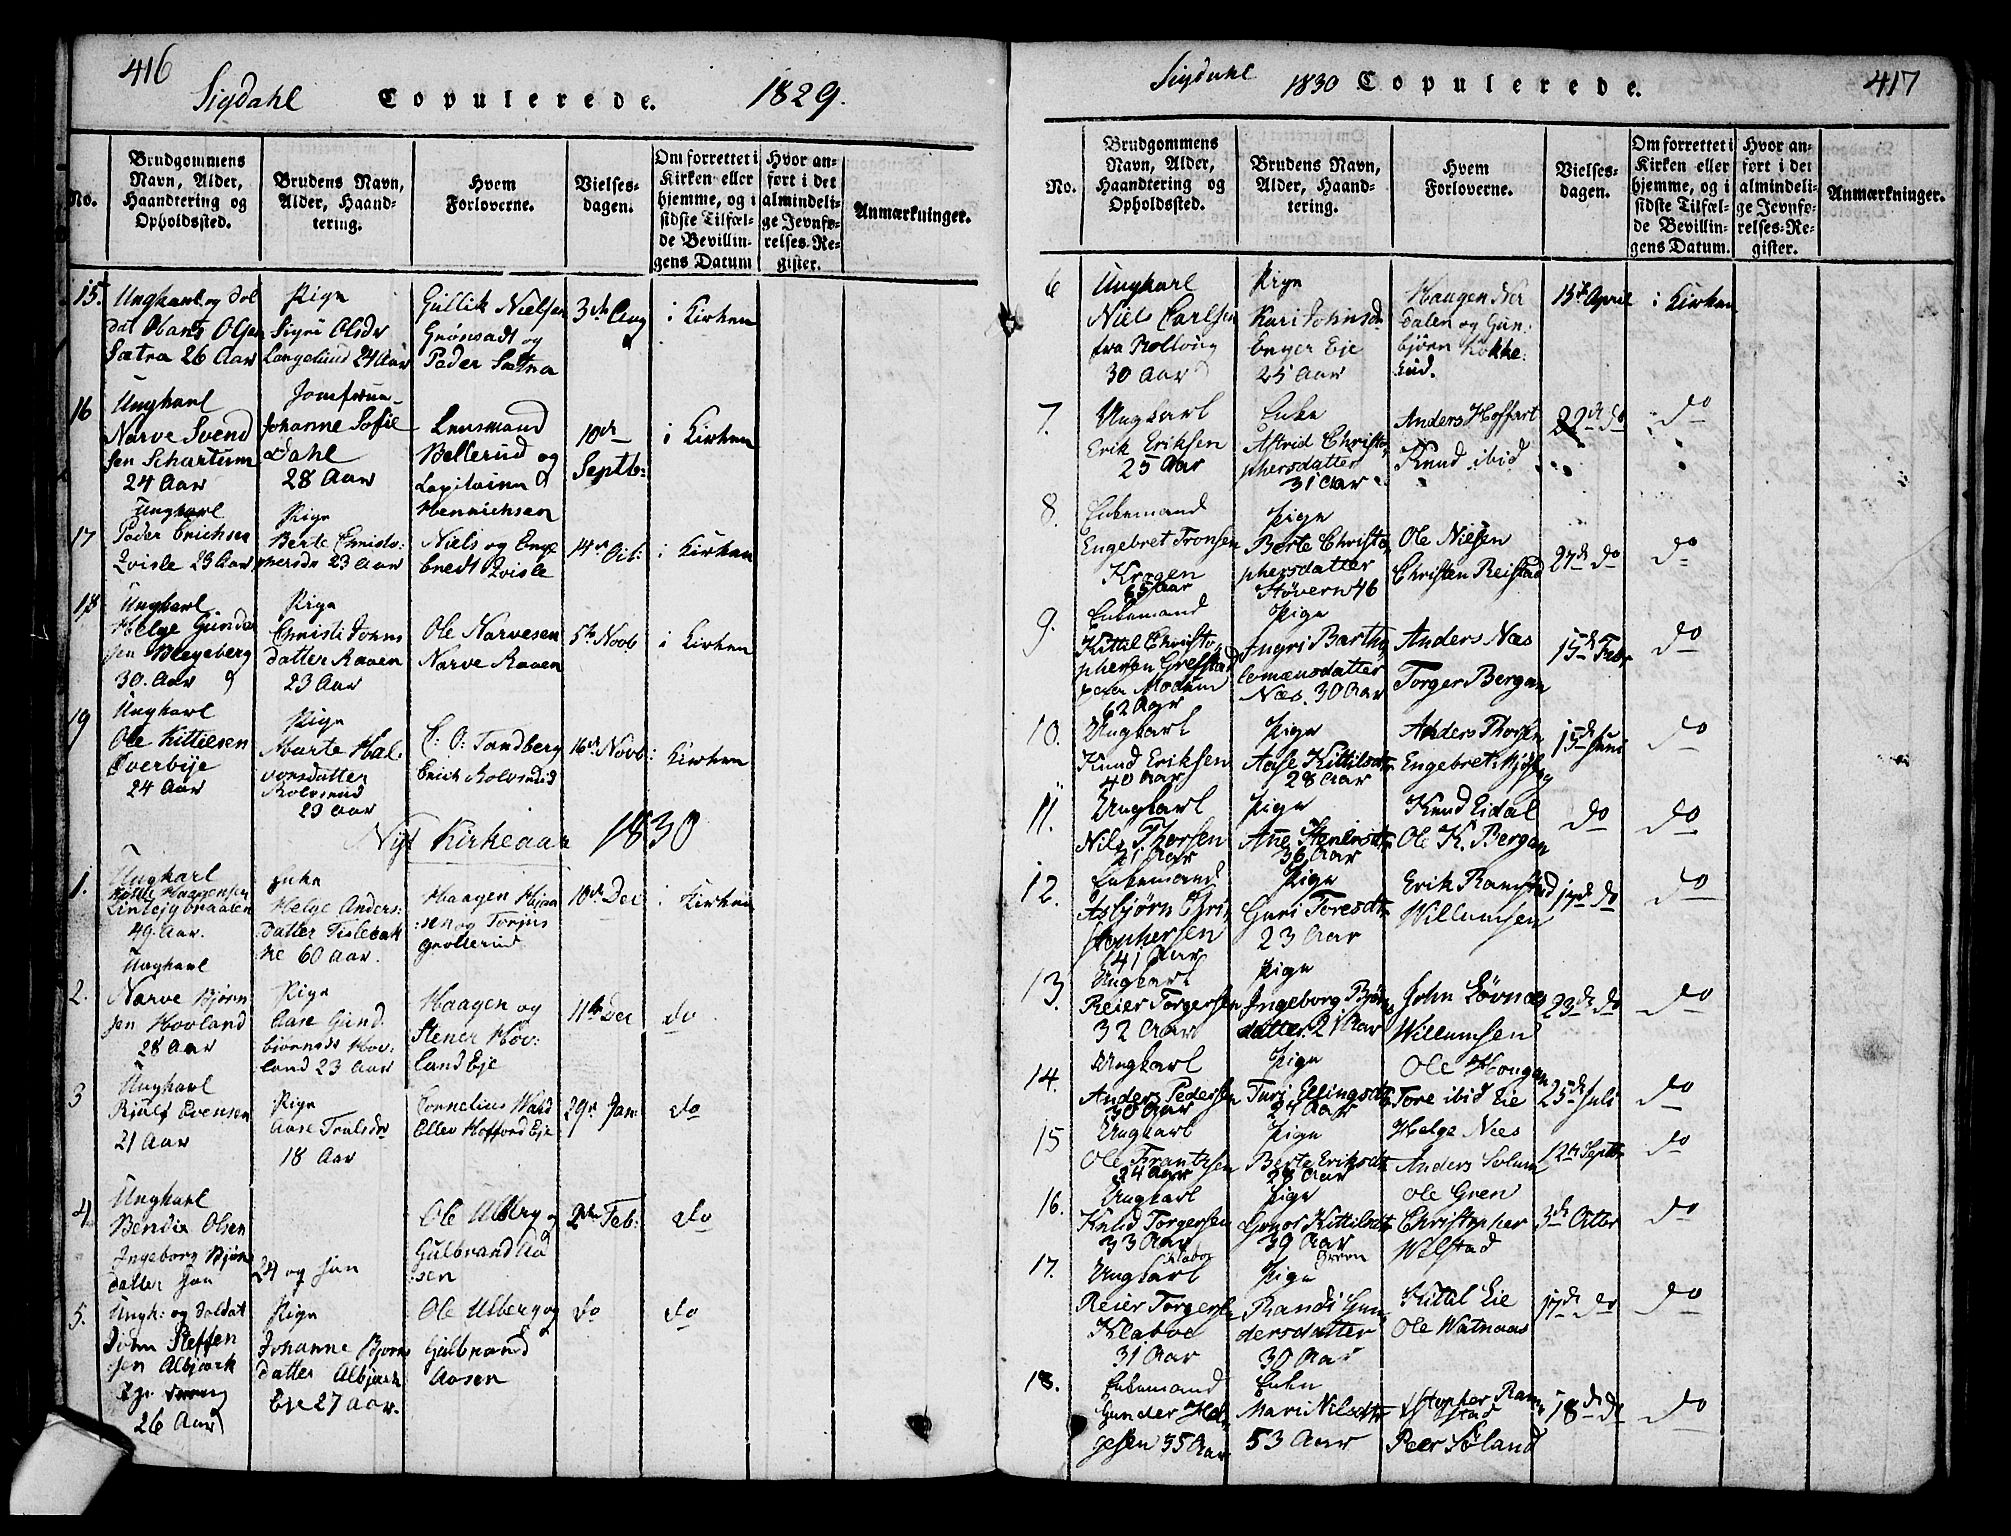 416
Sigdahl Copulerede. 1829.
No.
Brudgommens Navn, Alder, Haandtering og Opholdssted.
Brudens Navn, Alder, Haandtering.
Hvem Forloverne.
Vielsesdagen.
Om forrettet i Kirken eller hjemme, og i sidste Tilfælde Bevillingens Datum
Hvor anført i det almindelige Jevnførelses-Register.
Anmærkninger.
15.
Ungkarl og Sol
dat Hans Olsen
Sætra 26 Aar
Pige
Sigri Olsdr
Langelund 24 Aar
Gullik Nielsen
Grønsadt og
Peder Sætra
3die Aug
i Kirken
16
Ungkarl
Narve Svend
sen Schartum
24 Aar
Jomfrue
Johanne Sofie
Dahl
28 Aar
Lensmand
Bellerud og
Capitainen
Henrichsen
10de
Septb:
i Kirken
17
Ungkarl
Peder Erichsen
Qvisle 23 Aar
Pige
Berte Christo:
phersdr 23 Aar
Niels og Enge
bredt Qvisle
14de Octb:
i Kirken
18
Ungkarl
Helge Gunder
sen Blegeberg
30. Aar
Pige
Christi Johns
datter Raaen
23 Aar
Ole Narvesen
Narve Raaen
5te Novb
i Kirken
19
Ungkarl
Ole Kittelsen
Overbye
24 Aar
Pige
Marte Hal
vorsdatter
Rolvsrud
23 Aar
C: O: Tandberg
Erich Rolvsrud
16de Novb:
i Kirken
Nyt Kirkeaar 1830
1.
Ungkarl
Kittil Haagensen
49 Aar.
Enke
Helge Anders:
datter Tislebak
ke 60 Aar.
Haagen
sen og Torjus
Grøllerud
10de Dec
i Kirken
2.
Ungkarl
Narve Bjørn
sen Hovland
28 Aar
Pige
Aase Gund
biørnsdr Hov
land 23 Aar
Haagen og
Stener Hov:
land Eje
11te Dec
do
3
Ungkarl
Evensen
21 Aar
Pige
Aase Trulsdr
18 Aar
Cornelius Ward
Ellev Hofford Eje
29de Jan:
do
4
Ungkarl
Bendix Olsen
Ingeborg Bjørns
datter han
24 og hun
Ole Ulberg og
Gulbrand Aa
sen
2den Feb:
do
5.
Ungk: og Soldat
John Steffen
sen Albjærk
Eje
26 Aar
Pige
Johanne Bjørns
datter Albjærk
Eje 27 Aar.
Ole Ulberg og
Gulbrand
Aasen
do
do
Sigdahl 1830 Copulerede. 417
No.
Brudgommens Navn, Alder, Haandtering og Opholdssted.
Brudens Navn, Alder, Haandtering.
Hvem Forloverne.
Vielsesdagen.
Om forrettet i Kirken eller hjemme, og i sidste Tilfælde Bevillingens Datum.
Hvor anført i det almindelige Jevnførelses-Register.
Anmærkninger.
6
Ungkarl
Niels Carlsen
fra Rolloug
30 Aar
Pige
Kari Johnsd.
Enger Eje
25 Aar
Haagen Ner
dalen og Gun:
bjørn Kokke:
rud.
13de April
i Kirken
7.
Ungkarl
Erik Eriksen
25 Aar
Enke
Astrid Christo
phersdatter
31 Aar
Anders Hoffart
Knud ibid
22de do
do
8.
Enkemand
Engebret Tronsen
Krogen
65 Aar
Pige
Berte Christo
phersdatter
Støvern 46
Ole Nielsen
Christen Reistad
27de do
do
9.
Enkemand
Kittil Christo
phersen Grefstad
paa Modum
62 Aar
Pige
Ingri Bartho
lomæusdatter
Næs. 30 Aar
Anders Næs
Torger Bergan
15de Febr
do
10.
Ungkarl
Knud Eriksen
40 Aar
Pige
Aase Kittilsdtr
28 Aar
Anders Thorsen
Engebret
15de Juni
do
11.
Ungkarl
Nils Thorsen
21 Aar
Pige
Ane Stenersdtr
36 Aar
Knud Eidal
Ole K. Bergan
do
do
12.
Enkemand
Asbjørn Chri
stophersen
41 Aar
Pige
Guri Toresdtr
23 Aar
Erik Ramstad
Willumsen
17de do
do
13.
Ungkarl
Reier Torgersen
32 Aar
Pige
Ingeborg Bjørns
datter. 21 Aar
John Løvnæs
Willumsen
23de do
do
14.
Ungkarl
Anders Pedersen
30 Aar
Pige
Turi Ellingsdtr
24 Aar
Ole Hougan
Tore ibid Eie
25de Juli
do
15
Ungkarl
Ole Frantzsen
24 Aar
Pige
Berte Eriksdtr
28 Aar
Helge Næs
Anders Solum
12te Septbr
do
16.
Ungkarl
Knud Torgersen
33 Aar
Pige
Gunor Kittilsdtr
39 Aar
Ole Gren
Christopher
Wilstad
3de Octbr
do
17.
Ungkarl
Reier Torgersen
Klaboe
31 Aar
Pige
Randi Gun
dersdatter
30 Aar
Kittil Eie
Ole Watnaas
17de do
do
18.
Enkemand
Gunder Hel
gesen 35 Aar
Enke
Mari Nilsdtr
53 Aar
Xstopher Ram
stad
Peer Søland
18de do
do